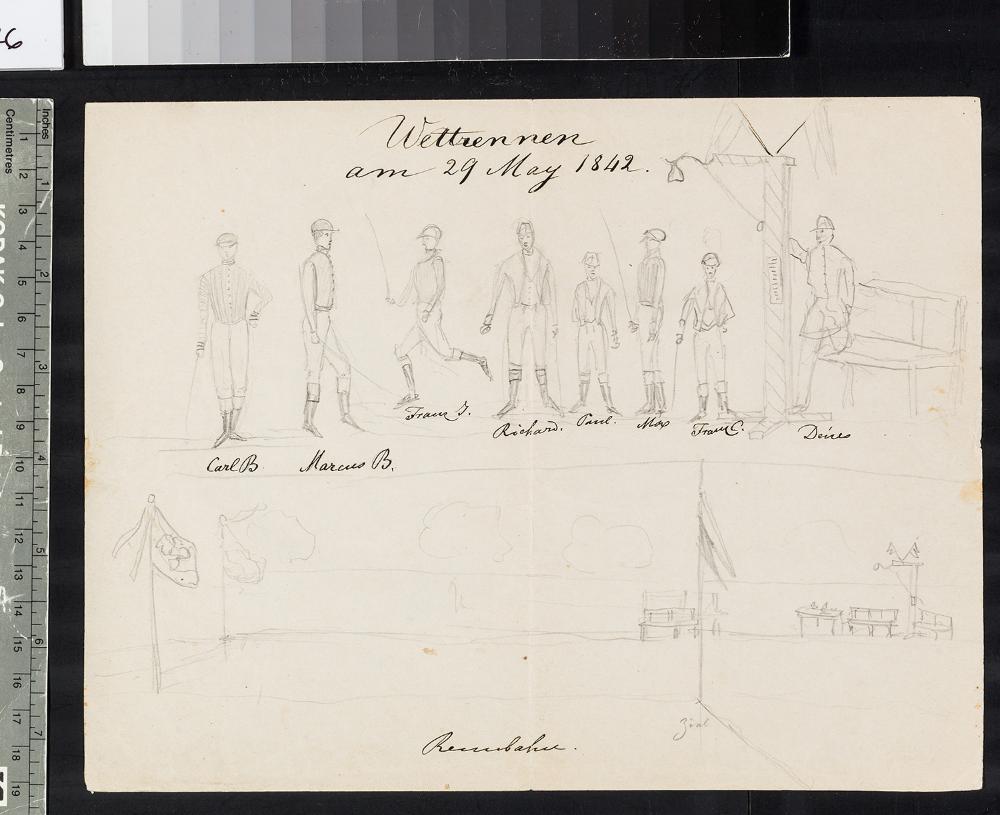 Wettrennen
am 29 May 1842.
Carl B.
Marcus B.
Franz J.
Richard.
Paul.
Max
Franz C.
Dénes
Ziel
Rennbahn.
Inches
1
2
3
4
5
6
7
Centimetres
1
2
3
4
5
6
7
8
9
10
11
12
13
14
15
16
17
18
19